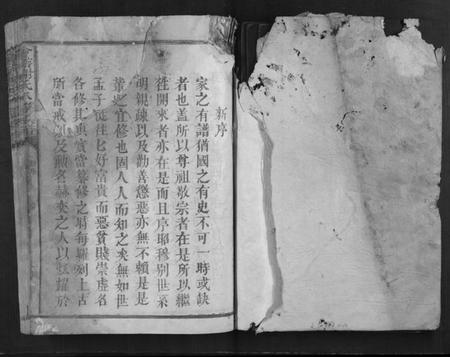 新序
家之有譜猶國之有史不可一時或缺
者也蓋所以尊祖敬宗者在是所以繼
徃開來者亦在是而且序昭穆別世系
明親疎以及勸善懲惡亦無不賴是是
譜之宜修也固人人而知之矣無如世
孟子徃徃匕好富貴而惡貧賤崇虛名
各修其
所當戒
及勳名赫奕之人以
耀於